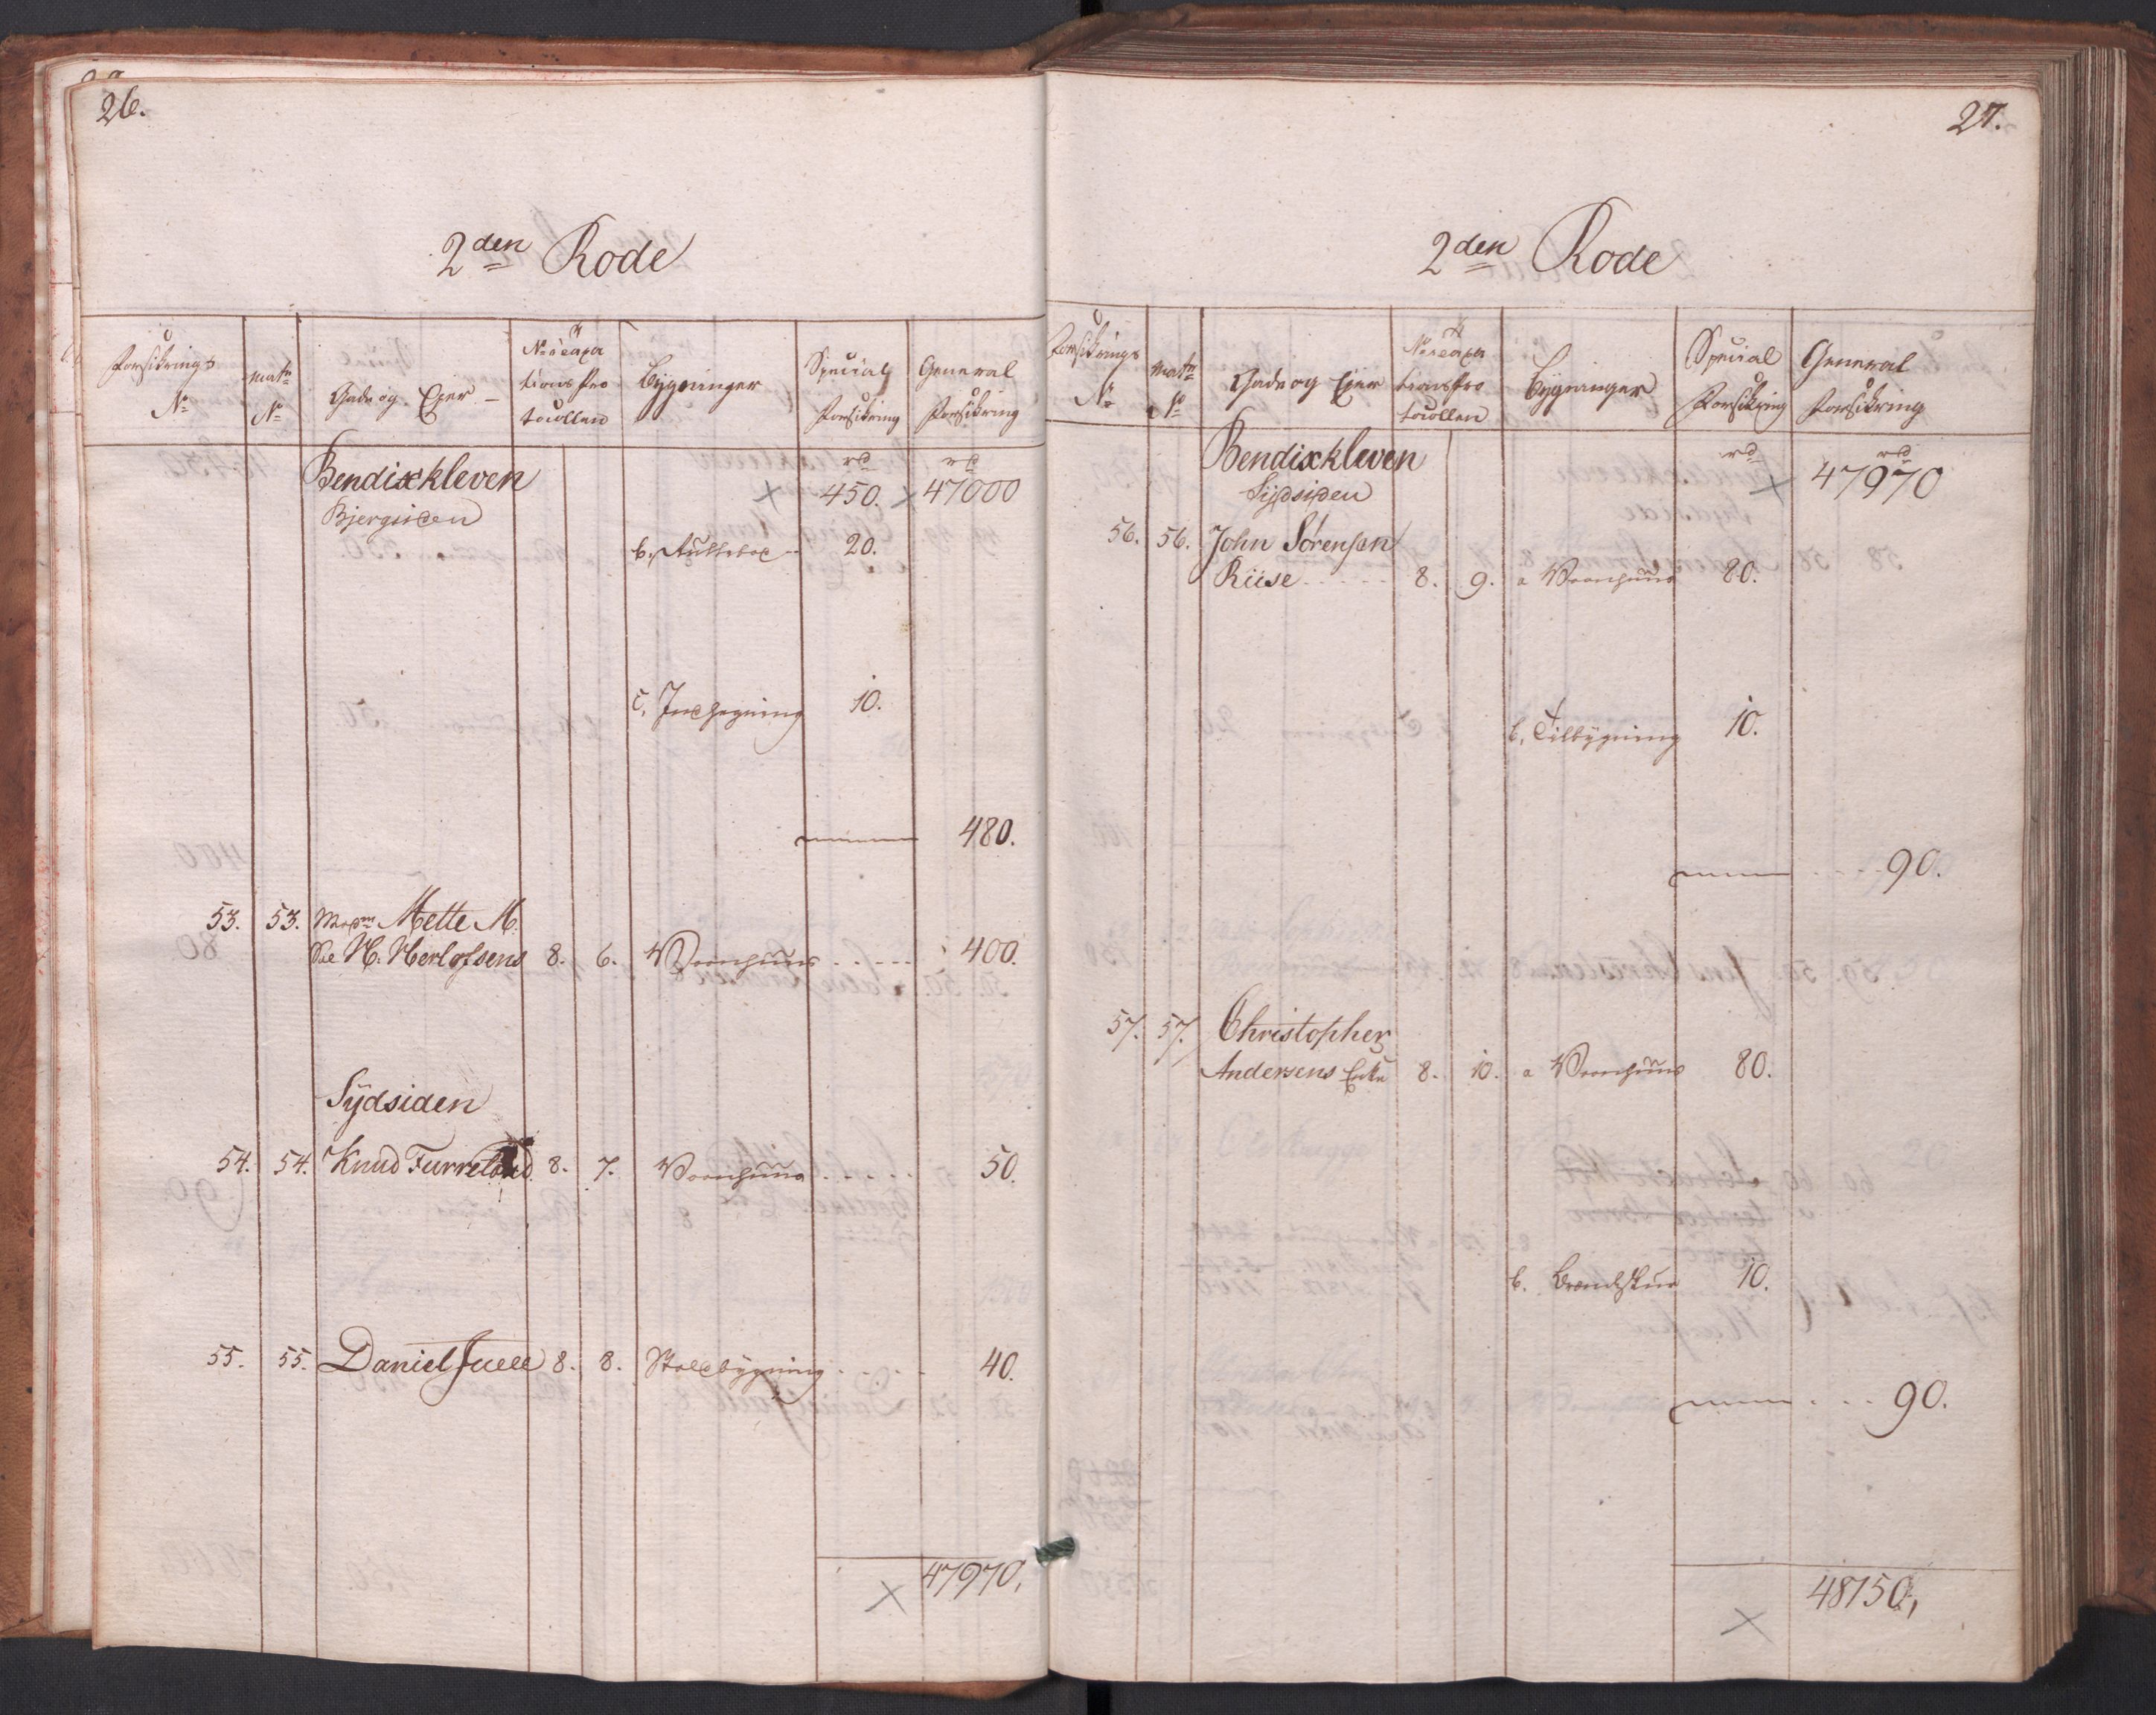 26.
2den Rode
Forsikrings No
Matr No
Gade og Eier
No i Taxationsprotocollen
Bygninger
Special Forsikring
General Forsikring
Bendixkleven rd rd
450. 47000
Bjergsiden
b. 20.
c. Indhegning 10.
480.
53. 53. Madm Mette M.
Sal H. Herlofsens 8. 6. Vaanhuus 400.
Sydsiden
54. 54. Knud 8. 7. Vaanhuus 50.
55. 55. Daniel Juell 8. 8. Staldbygning 40.
47970.
27.
2den Rode
Forsikrings No
Matr No
Gade og Eier
No i Taxationsprotocollen
Bygninger
Special Forsikring
General Forsikring
Bendixkleven rd rd
47970
Sydsiden
56. 56. John Sørensen
Riise 8. 9. a Vaanhuus 80.
b. Tilbygning 10.
90.
57. 57. Christopher
Andersens Enke 8. 10. a Vaanhuus 80.
b. Brændeskuur 10.
90.
48150,